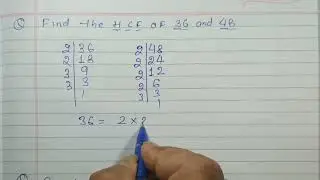 Q Find the H C F of 36 and 48
2 36 2 48
2 18 2 24
3 9 2 12
3 3 2 6
1 3 3
1
36 = 2 × 2